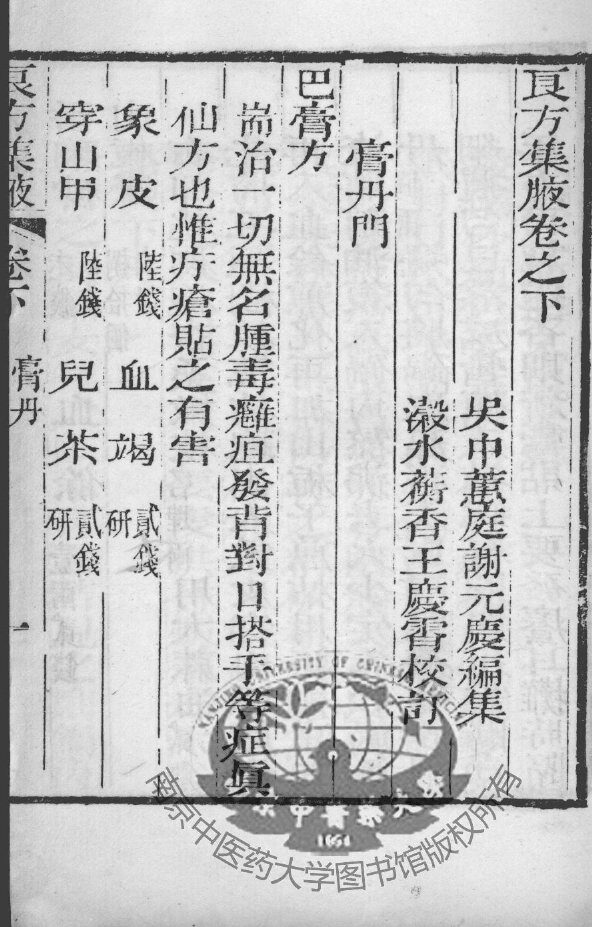 良方集腋卷之下
吳中蕙庭謝元慶編集
瀔水蘅香王慶霄校訂
膏丹門
巴膏方
耑治一切無名腫毒癰疽發背對口搭手等症眞
仙方也惟疔瘡貼之有害
象皮 陸錢 血竭 貳錢研
穿山甲 陸錢 兒茶 貳錢研
良方集腋 卷下 膏丹 一
NANJING UNIVERSITY OF CHINESE MEDICINE
南京中醫藥大學
1954
南京中医药大学图书馆版权所有